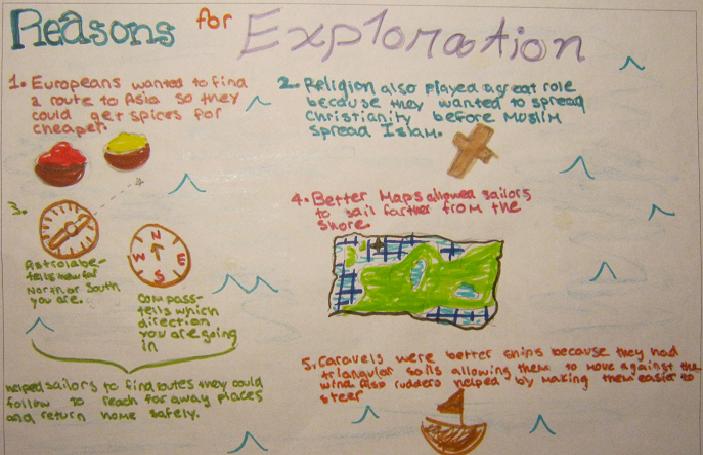 Reasons for Exploration
1. Europeans wanted to find
a route to Asia so they
could get spices for
cheaper.
2. Religion also played a great role
because they wanted to spread
Christianity before Muslim
spread Islam.
3.
Astrolabe-
tells how far
North or South
you are.
N
W E
S
compass-
tells which
direction
you are going
in
helped sailors to find routes they could
follow to reach far away places
and return home safely.
4. Better Maps allowed sailors
to sail farther from the
shore
5. Caravels were better ships because they had
triangular sails allowing them to move against the
wind also rudders helped by making them easier to
steer